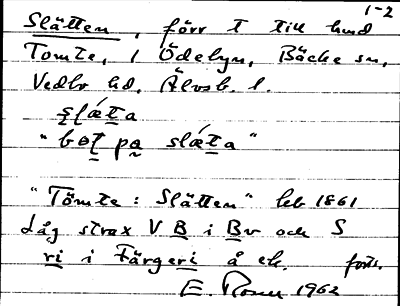 1-2
Slätten, förr t till hmd
Tomte, i Ödebyn, Bäcke sn,
Vedbo hd, Älvsb. l.
slǽta
"bot pa slǽta"
"Tömte: Slätten" leb 1861
Låg strax V B i Bv och S
ri i Färgeri å ek. forts.
E. Rosen 1962